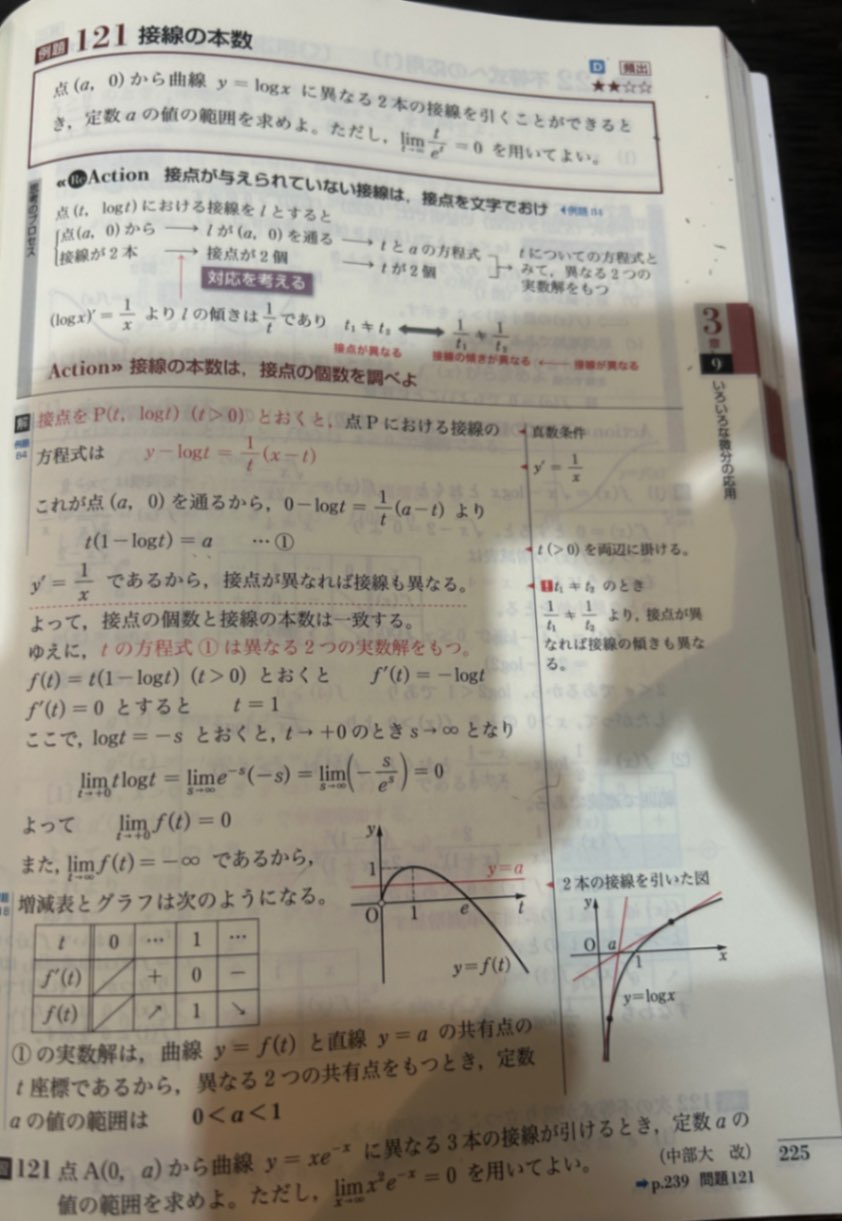 例題 121 接線の本数
D 頻出
★★☆☆
点(a, 0)から曲線 y=logx に異なる2本の接線を引くことができると
き, 定数aの値の範囲を求めよ。ただし, lim[t→∞] t/e^t = 0 を用いてよい。
思考のプロセス
≪Re Action 接点が与えられていない接線は, 接点を文字でおけ ◀例題84
点(t, logt)における接線をlとすると
点(a, 0)から → lが(a, 0)を通る → tとaの方程式
接線が2本 → 接点が2個 → tが2個
tについての方程式と
みて, 異なる2つの
実数解をもつ
対応を考える
(logx)′=1/x よりlの傾きは1/tであり t₁≠t₂ ⟷ 1/t₁≠1/t₂
接点が異なる 接線の傾きが異なる ← 接線が異なる
Action≫ 接線の本数は, 接点の個数を調べよ
3章
9
いろいろな微分の応用
解 接点をP(t, logt) (t>0) とおくと, 点Pにおける接線の
例題84
方程式は y−logt=1/t(x−t)
◀真数条件
◀y′=1/x
これが点(a, 0)を通るから, 0−logt=1/t(a−t) より
t(1−logt)=a …①
◀t(>0)を両辺に掛ける。
y′=1/x であるから, 接点が異なれば接線も異なる。
◀!t₁≠t₂ のとき
1/t₁≠1/t₂ より, 接点が異
なれば接線の傾きも異な
る。
よって, 接点の個数と接線の本数は一致する。
ゆえに, tの方程式①は異なる2つの実数解をもつ。
f(t)=t(1−logt) (t>0) とおくと f′(t)=−logt
f′(t)=0 とすると t=1
ここで, logt=−s とおくと, t→+0のとき s→∞ となり
lim[t→+0] tlogt=lim[s→∞] e^(−s)(−s)=lim[s→∞](−s/e^s)=0
よって lim[t→+0] f(t)=0
また, lim[t→∞] f(t)=−∞ であるから,
増減表とグラフは次のようになる。
t 0 … 1 …
f′(t) + 0 −
f(t) ↗ 1 ↘
y
1
y=a
O 1 e t
y=f(t)
◀2本の接線を引いた図
y
O a 1 x
y=logx
①の実数解は, 曲線 y=f(t) と直線 y=a の共有点の
t座標であるから, 異なる2つの共有点をもつとき, 定数
aの値の範囲は 0<a<1
121 点A(0, a)から曲線 y=xe^(−x) に異なる3本の接線が引けるとき, 定数aの
値の範囲を求めよ。ただし, lim[x→∞] x²e^(−x)=0 を用いてよい。
(中部大 改)
➡p.239 問題121
225